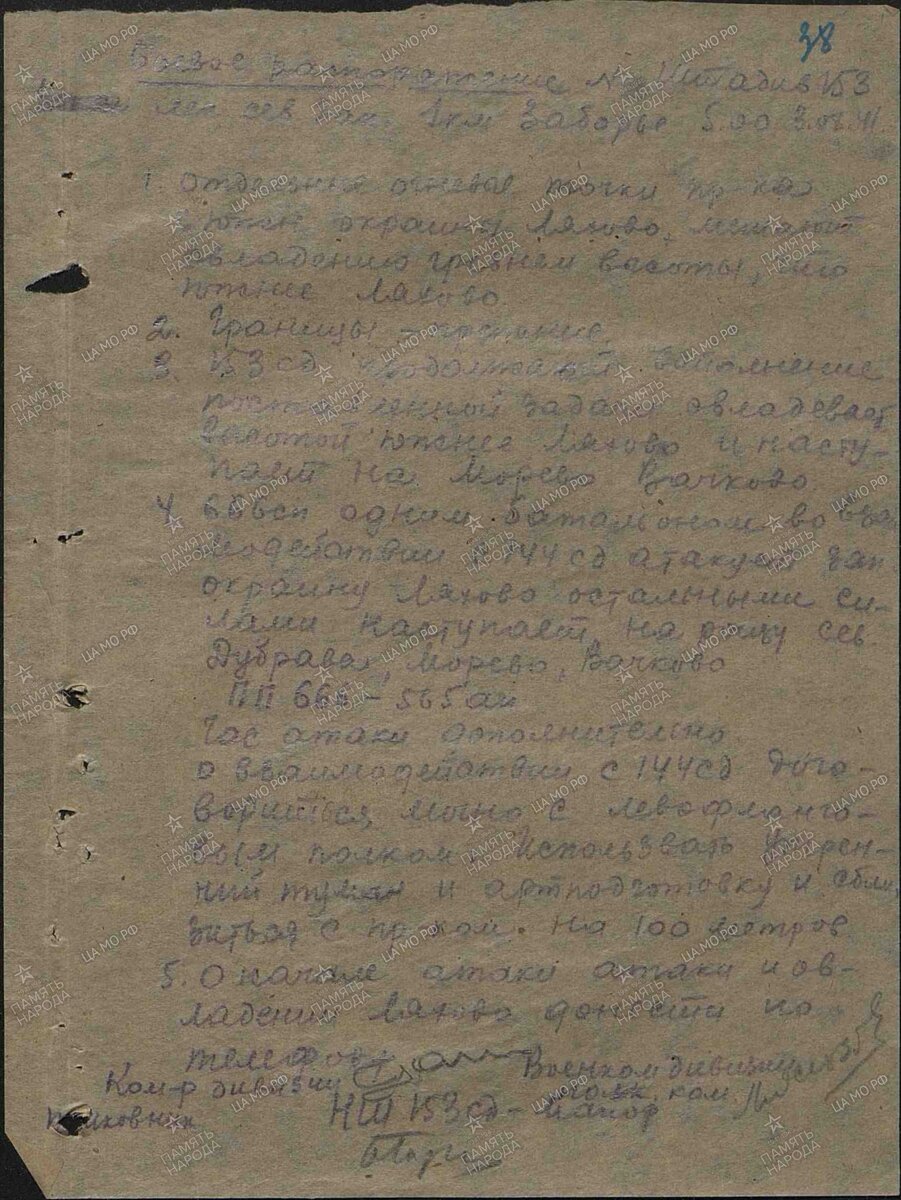 38
Боевое распоряжение № Штадив 153
лес сев. зап. 1 км Заборье 5.00 3.08.41.
1. Отдельные огневые точки пр-ка
южн. окраину Ляхово, мешают
овладению гребнем высоты, что
южнее Ляхово.
2. Границы – прежние.
3. 153 сд продолжает выполнение
поставленной задачи овладевает
высотой южнее Ляхово и насту-
пает на Морево Вачково
4. 666 сп одним батальоном во вза
модействии с 144 сд атакует зап
окраину Ляхово остальными си-
лами наступает на рощу сев.
Дубрава, Морево, Вачково
ПП 666 – 565 ап
Час атаки дополнительно.
О взаимодействии с 144 сд дого-
вориться с левофланго-
вым полком. Использовать утрен-
ний туман и артподготовку и сбли
зиться с пр-ком. на 100 метров
5. О начале атаки атаки и ов-
ладении Ляхово донести по
телефону
Ком-р дивизии Военком дивизии
полковник ком.
НШ 153 сд – майор